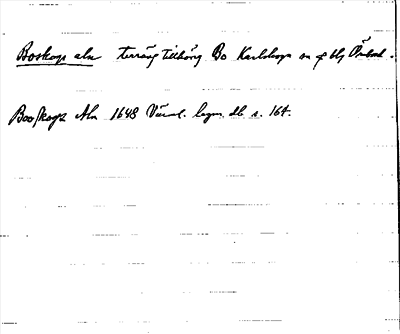 Boskogs alm terräng tillhörig Bo Karlskoga sn
Booskogz Alm 1648 Värml. lagm. db s. 164.